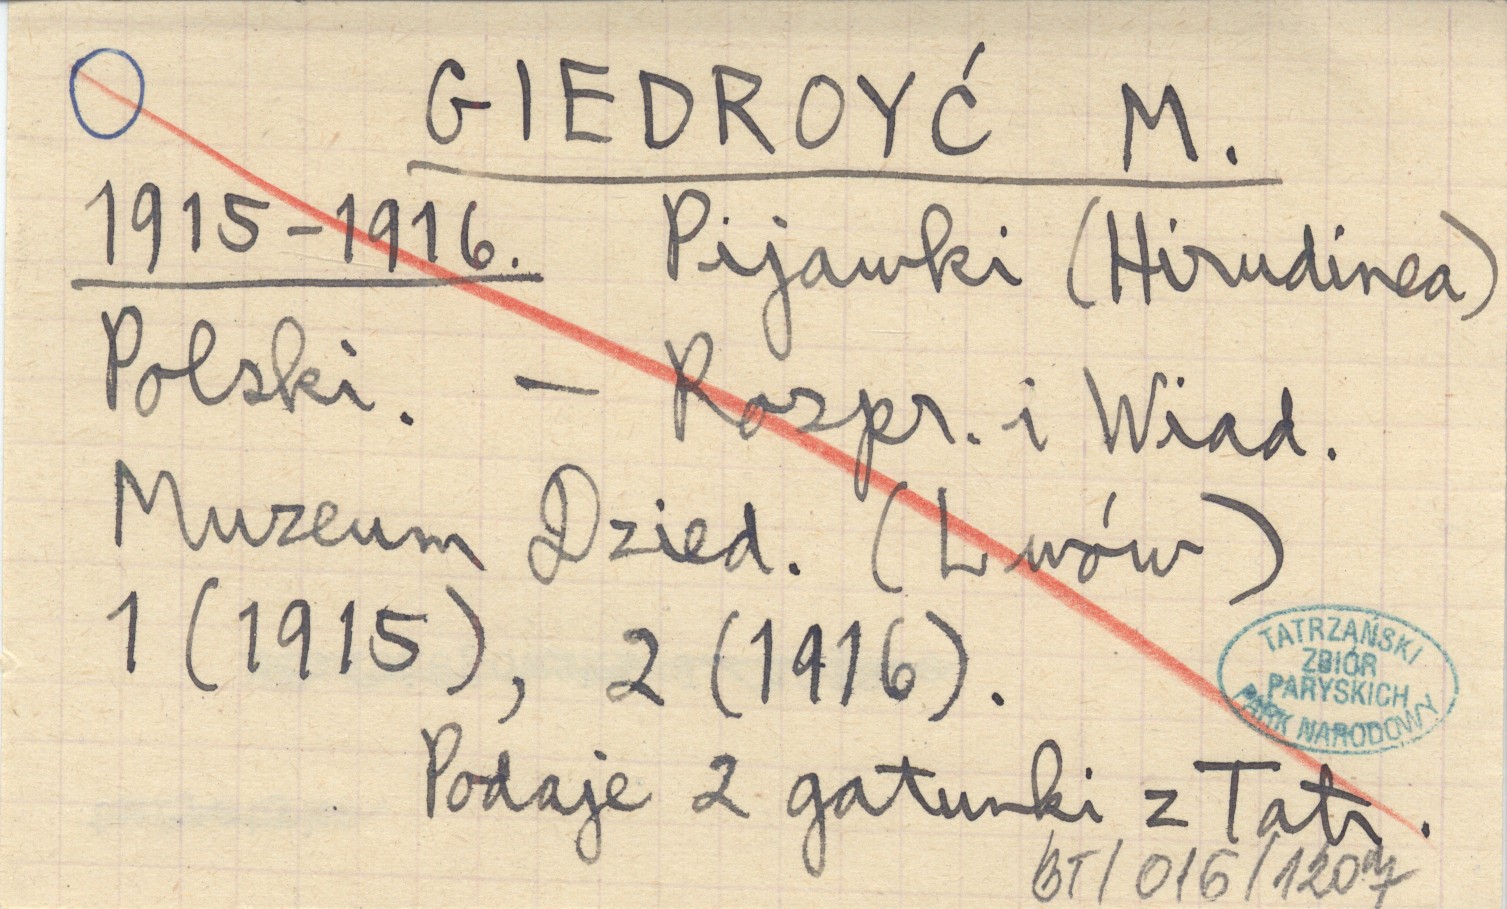 GIEDROYĆ M.
1915-1916. Pijawki (Hirudinea)
Polski. — Rozpr. i Wiad.
Muzeum Dzied. (Lwów)
1 (1915), 2 (1916).
TATRZAŃSKI
ZBIÓR
PARYSKICH
PARK NARODOWY
Podaje 2 gatunki z Tatr.
BT/016/1207